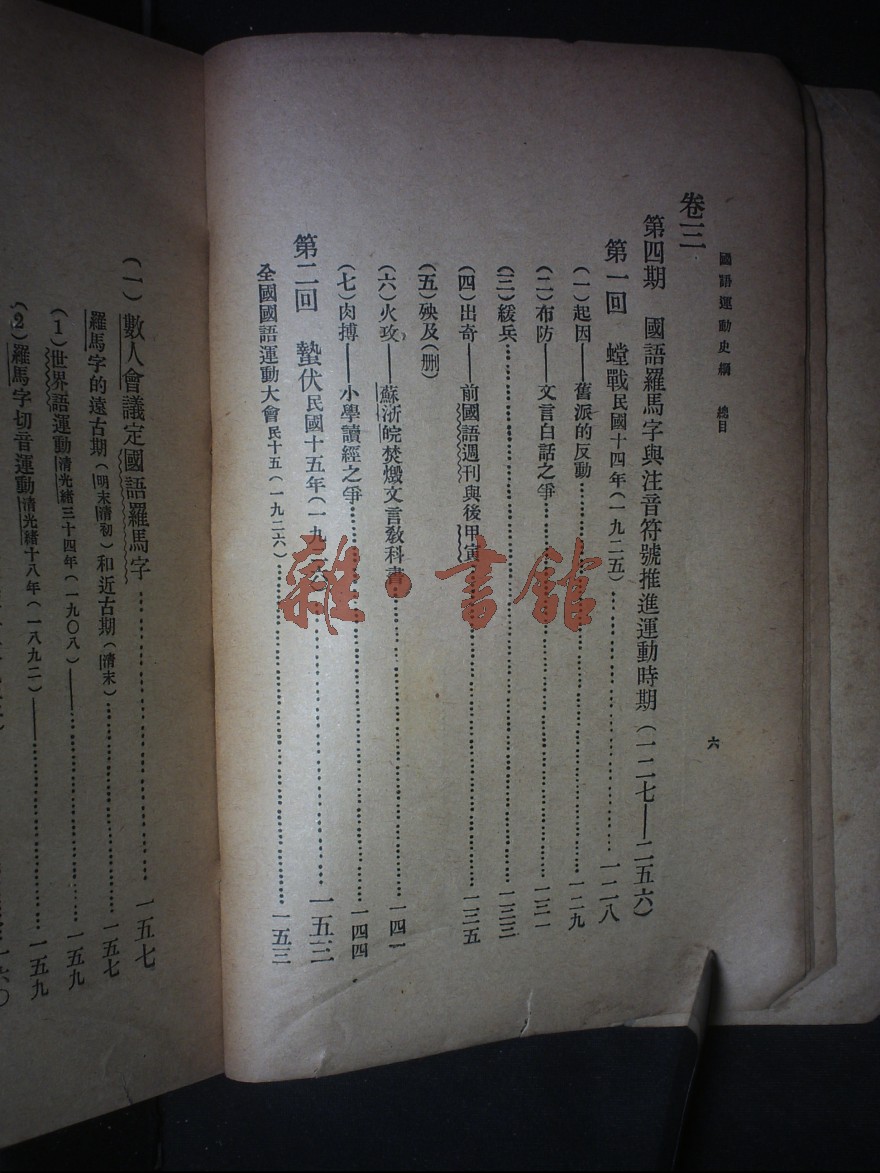 國語運動史綱 總目 六
卷三
第四期 國語羅馬字與注音符號推進運動時期(一二七——二五六)
第一回 螳戰民國十四年(一九二五)……一二八
(一)起因——舊派的反動……一二九
(二)布防——文言白話之爭……一三一
(三)緩兵……一三三
(四)出奇——前國語週刊與後甲寅……一三五
(五)殃及(刪)
(六)火攻——蘇浙皖焚燬文言教科書……一四一
(七)肉搏——小學讀經之爭……一四四
第二回 蟄伏民國十五年(一九二六)……一五三
全國國語運動大會民十五(一九二六)……一五三
(一)數人會議定國語羅馬字……一五七
羅馬字的遠古期(明末清初)和近古期(清末)……一五七
(1)世界語運動清光緒三十四年(一九〇八)——……一五九
(2)羅馬字切音運動清光緒十八年(一八九二)——……一五九
雜·書館